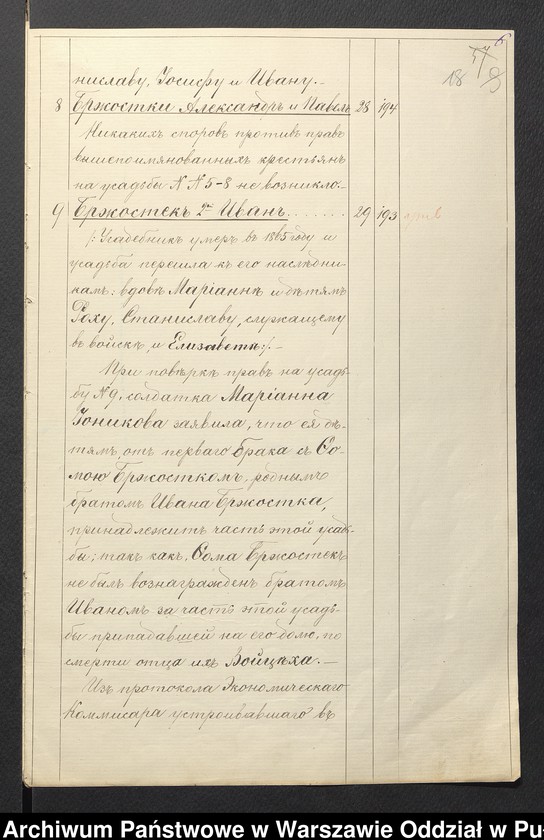 ниславу, Іосифу и Ивану.-
8 Бржостки Александръ и Павелъ 28 194
Никакихъ споровъ противъ правъ
вышепоимянованныхъ крестьянъ
на усадьбы N N 5-8 не возникло.-
9 Бржостекъ 2й Иванъ....... 29 193
/: Усадебникъ умеръ въ 1865 году и
усадьба перешла къ его наслѣдни-
камъ: вдовѣ Маріаннѣ и дѣтямъ
Роху, Станиславу, служащему
въ войскѣ, и Елизаветѣ:/.-
При повѣркѣ правъ на усадь-
бу N 9, солдатка Маріанна
заявила, что ея дѣ-
тямъ, отъ перваго брака съ Ѳо-
мою Бржосткомъ, роднымъ
братомъ Ивана Бржостка,
принадлежитъ часть этой усадь-
бы; такъ какъ, Ѳома Бржостекъ
не былъ вознагражденъ братомъ
Иваномъ за часть этой усадь-
бы припадавшей на его долю, по
смерти отца ихъ Войцѣха.-
Изъ протокола Экономическаго
Коммисара устроивавшаго въ
Archiwum Państwowe w Warszawie Oddział w Pu